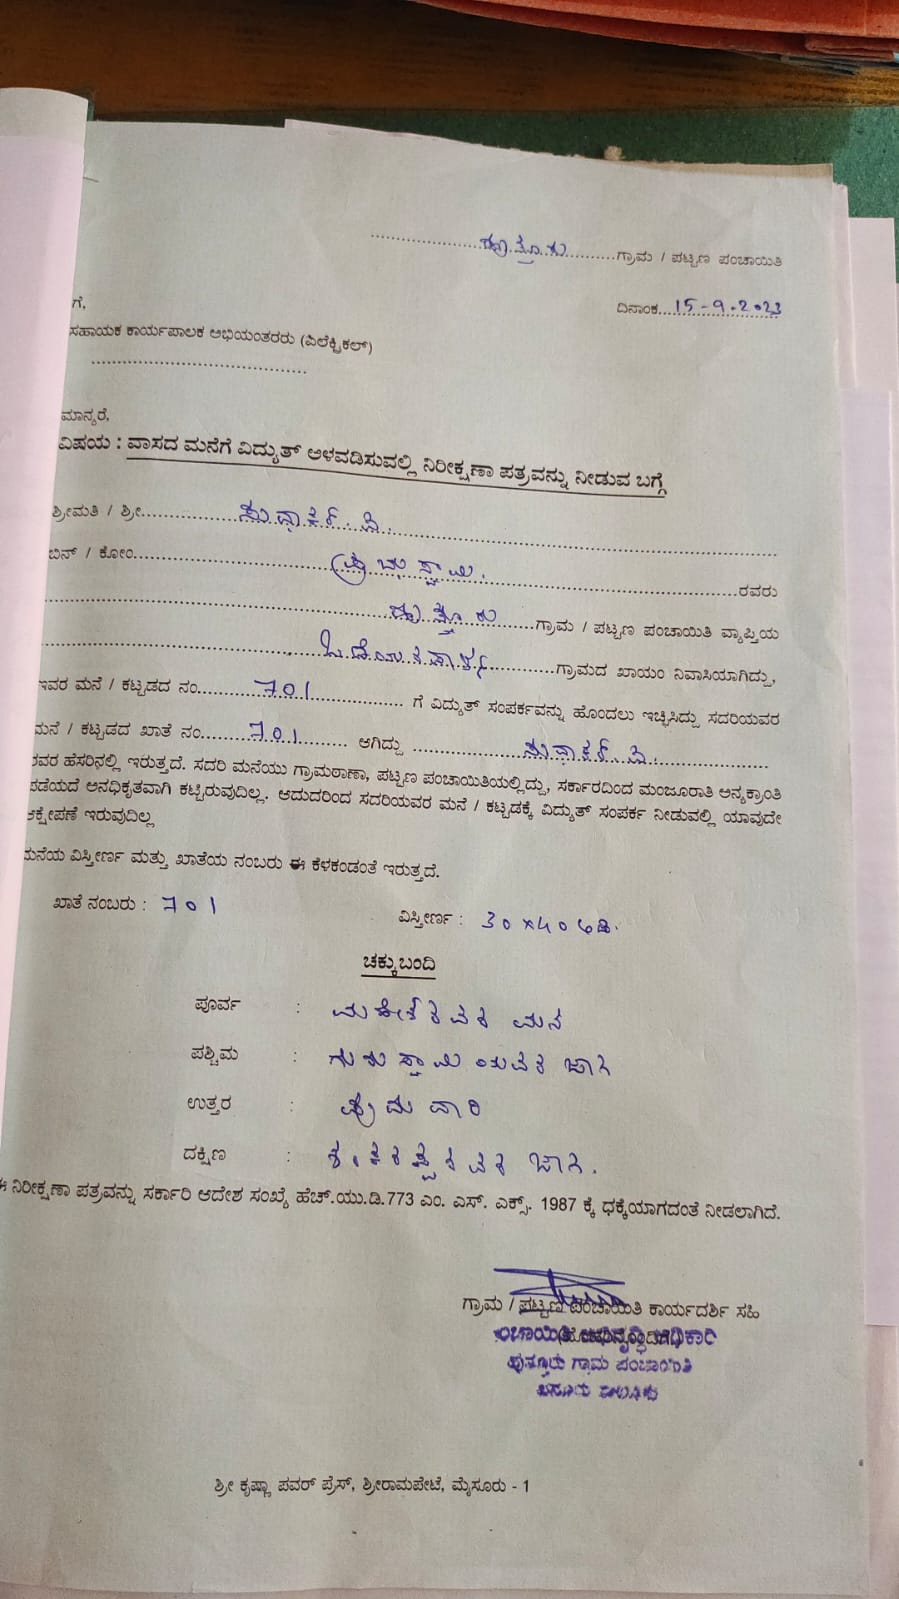 ಗ್ರಾಮ / ಪಟ್ಟಣ ಪಂಚಾಯಿತಿ
ಗೆ,
ದಿನಾಂಕ 15-9-2023
ಸಹಾಯಕ ಕಾರ್ಯಪಾಲಕ ಅಭಿಯಂತರರು (ವಿಲೆಕ್ಟ್ರಿಕಲ್)
ಮಾನ್ಯರೆ,
ವಿಷಯ : ವಾಸದ ಮನೆಗೆ ವಿದ್ಯುತ್ ಅಳವಡಿಸುವಲ್ಲಿ ನಿರೀಕ್ಷಣಾ ಪತ್ರವನ್ನು ನೀಡುವ ಬಗ್ಗೆ
ಶ್ರೀಮತಿ / ಶ್ರೀ ಸುಧಾಕರ್. ಪಿ.
ಬಿನ್ / ಕೋಂ ಪ್ರಭುಸ್ವಾಮಿ. ರವರು
ಗ್ರಾಮ / ಪಟ್ಟಣ ಪಂಚಾಯಿತಿ ವ್ಯಾಪ್ತಿಯ
ಗ್ರಾಮದ ಖಾಯಂ ನಿವಾಸಿಯಾಗಿದ್ದು,
ಇವರ ಮನೆ / ಕಟ್ಟಡದ ನಂ. 701 ಗೆ ವಿದ್ಯುತ್ ಸಂಪರ್ಕವನ್ನು ಹೊಂದಲು ಇಚ್ಛಿಸಿದ್ದು ಸದರಿಯವರ
ಮನೆ / ಕಟ್ಟಡದ ಖಾತೆ ನಂ. 701 ಆಗಿದ್ದು ಸುಧಾಕರ್ ಪಿ.
ರವರ ಹೆಸರಿನಲ್ಲಿ ಇರುತ್ತದೆ. ಸದರಿ ಮನೆಯು ಗ್ರಾಮಠಾಣಾ, ಪಟ್ಟಣ ಪಂಚಾಯಿತಿಯಲ್ಲಿದ್ದು, ಸರ್ಕಾರದಿಂದ ಮಂಜೂರಾತಿ ಅನ್ಯಕ್ರಾಂತಿ
ಪಡೆಯದೆ ಅನಧಿಕೃತವಾಗಿ ಕಟ್ಟಿರುವುದಿಲ್ಲ. ಆದುದರಿಂದ ಸದರಿಯವರ ಮನೆ / ಕಟ್ಟಡಕ್ಕೆ ವಿದ್ಯುತ್ ಸಂಪರ್ಕ ನೀಡುವಲ್ಲಿ ಯಾವುದೇ
ಆಕ್ಷೇಪಣೆ ಇರುವುದಿಲ್ಲ
ಮನೆಯ ವಿಸ್ತೀರ್ಣ ಮತ್ತು ಖಾತೆಯ ನಂಬರು ಈ ಕೆಳಕಂಡಂತೆ ಇರುತ್ತದೆ.
ಖಾತೆ ನಂಬರು : 701
ವಿಸ್ತೀರ್ಣ : 30x40 ಅಡಿ.
ಚಕ್ಕುಬಂದಿ
ಪೂರ್ವ : ಮಹೇಶರವರ ಮನೆ
ಪಶ್ಚಿಮ : ಗುರುಸ್ವಾಮಿಯವರ ಜಾಗ
ಉತ್ತರ :
ದಕ್ಷಿಣ : ಜಾಗ.
ಈ ನಿರೀಕ್ಷಣಾ ಪತ್ರವನ್ನು ಸರ್ಕಾರಿ ಆದೇಶ ಸಂಖ್ಯೆ ಹೆಚ್.ಯು.ಡಿ.773 ಎಂ. ಎಸ್. ಎಕ್ಸ್. 1987 ಕ್ಕೆ ಧಕ್ಕೆಯಾಗದಂತೆ ನೀಡಲಾಗಿದೆ.
ಗ್ರಾಮ / ಪಟ್ಟಣ ಪಂಚಾಯಿತಿ ಕಾರ್ಯದರ್ಶಿ ಸಹಿ
ಗ್ರಾಮ ಪಂಚಾಯಿತಿ
ಶ್ರೀ ಕೃಷ್ಣಾ ಪವರ್ ಪ್ರೆಸ್, ಶ್ರೀರಾಮಪೇಟೆ, ಮೈಸೂರು - 1